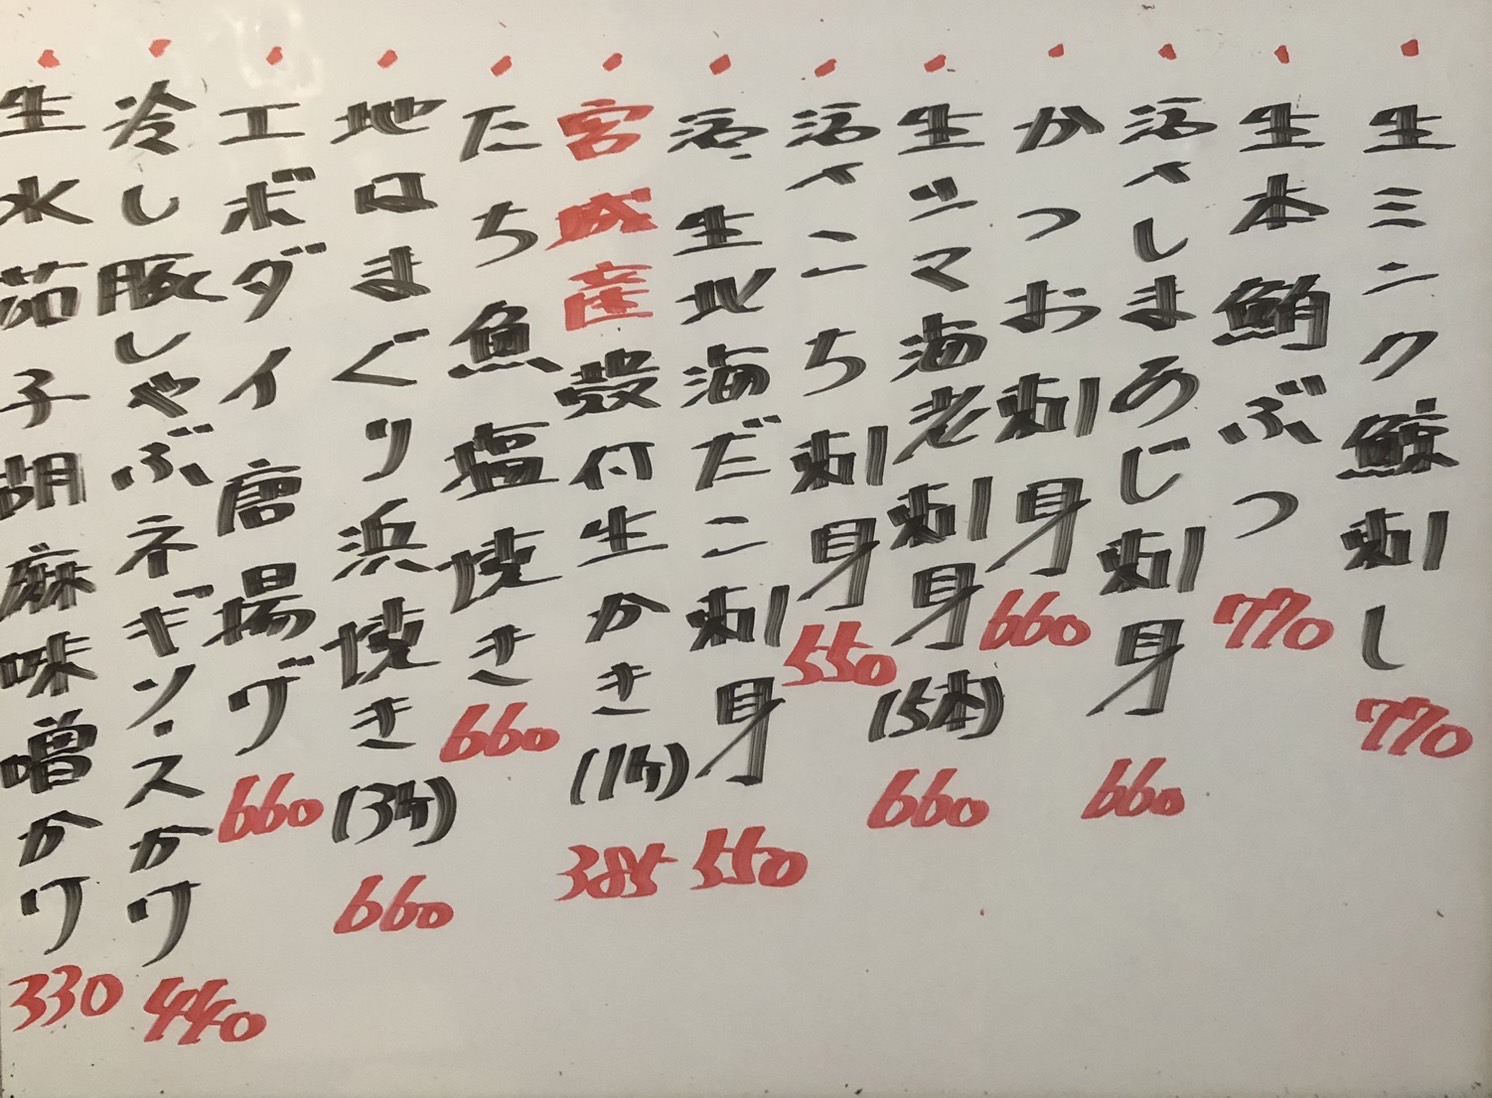 生ミンク鯨刺し 770
生本鮪ぶつ 770
活〆しまあじ刺身 660
かつお刺身 660
生シマ海老刺身(5本) 660
活〆こち刺身 550
活生地海だこ刺身 550
宮城産殻付生かき(1ケ) 385
たち魚塩焼き 660
地はまぐり浜焼き(3ケ) 660
エボダイ唐揚ゲ 660
冷し豚しゃぶネギソースかけ 440
生水茄子胡麻味噌かけ 330